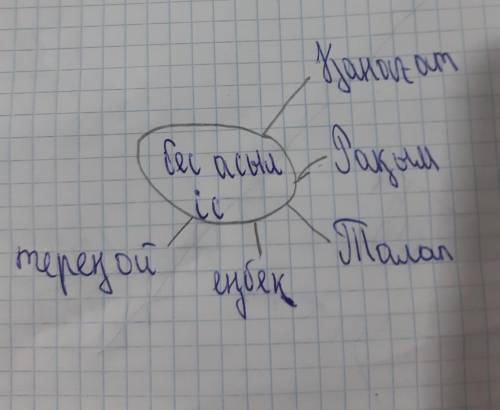 Қанағат
бес асыл
іс
Рақым
Талап
еңбек
терең ой